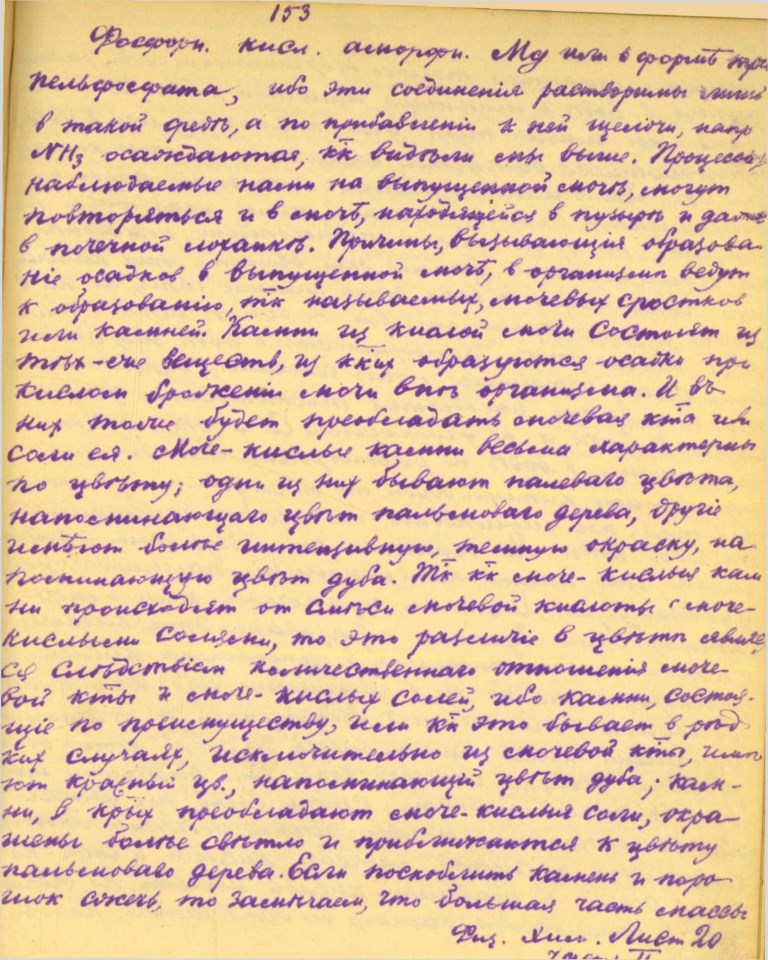 153
Фосфорн. кисл. аморфн. Mg или в формѣ три
пельфосфата, ибо эти соединенія растворимы лишь
в такой средѣ, а по прибавленіи к ней щелочи, напр
NH3 осаждаются, кк видѣли мы выше. Процессы,
наблюдаемые нами на выпущенной мочѣ, могут
повторяться и в мочѣ, находящейся в пузырѣ и даже
в почечной лоханкѣ. Причины, вызывающія образова-
ніе осадков в выпущенной мочѣ, в организмѣ ведут
к образованію, тк называемых, мочевых сростков
или камней. Камни из кислой мочи состоят из
тѣх-же веществ, из кких образуются осадки при
кислом броженіи мочи внѣ организма. И въ
них тоже будет преобладать мочевая кта или
соли ея. Моче-кислые камни весьма характерны
по цвѣту; одни из них бывают палеваго цвѣта,
напоминающаго цвѣт пальмоваго дерева, другіе
имѣют болѣе интензивную, темную окраску, на
поминающую цвѣт дуба. Тк кк моче-кислыя кам
ни происходят от смѣси мочевой кислоты с моче-
кислыми солями, то это различіе в цвѣтѣ являет
ся слѣдствіем количественнаго отношенія моче-
вой кты и моче-кислых солей, ибо камни, состоя-
щіе по преимуществу, или кк это бывает в рѣд
ких случаях, исключительно из мочевой кты, имѣ
ют красный цв., напоминающій цвѣт дуба; кам-
ни, в крых преобладают моче-кислыя соли, окра-
шены болѣе свѣтло и приближаются к цвѣту
пальмоваго дерева. Если поскоблить камень и поро-
шок сжечь, то замѣчаем, что большая часть массы
Физ. Хим. Лист 20